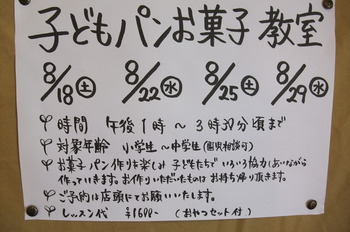 子どもパンお菓子教室
8/18(土) 8/22(水) 8/25(土) 8/29(水)
時間 午後1時～3時30分頃まで
対象年齢 小学生～中学生
お菓子パン作りを楽しみ 子どもたちで いろいろ協力しあいながら
作っていきます。お作りいただいたものは お持ち帰り頂きます。
ご予約は店頭にてお願いいたします。
レッスン代 ¥1600- (おやつセット付)